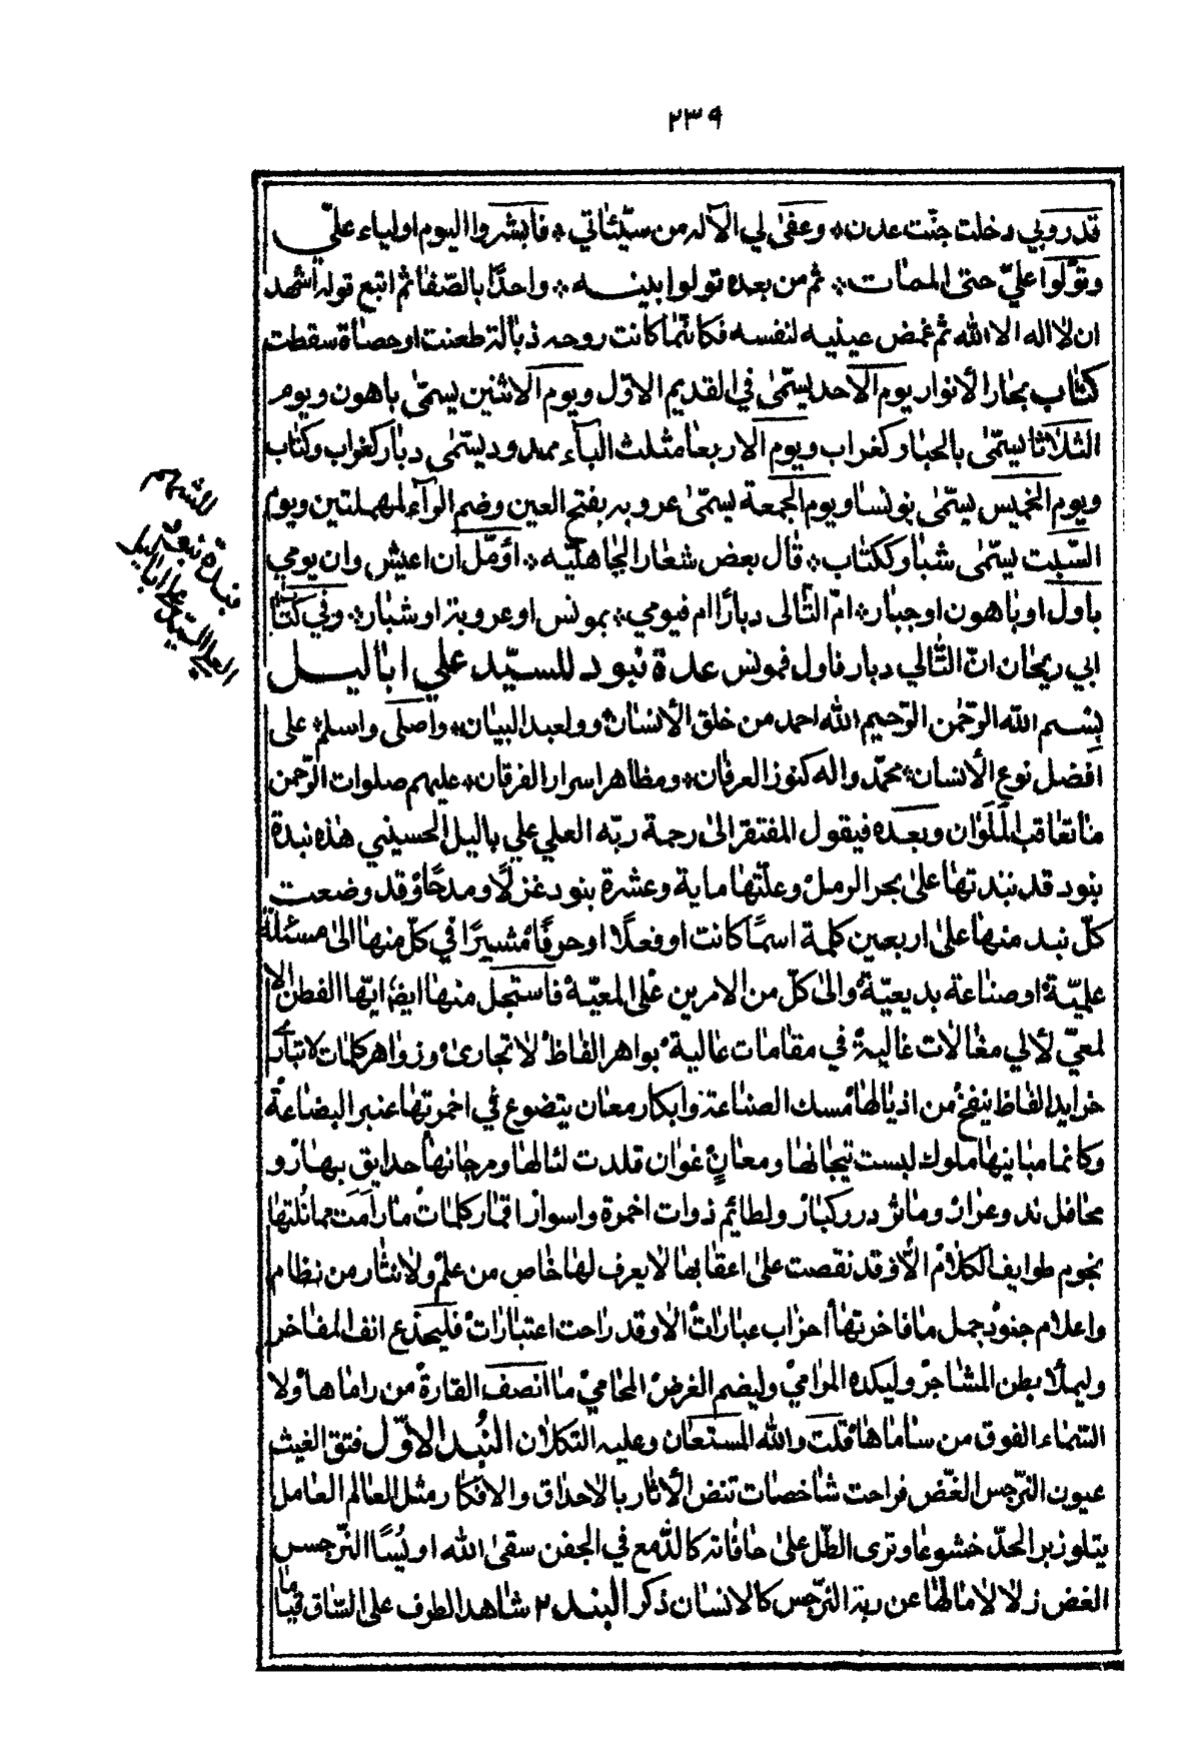 ٢٣٩
قد روبي دخلت جنّت عدن * وعفىٰ لي الآله من سيّئاتي * فابشروا اليوم اولياء عليّ
وتوّلوا عليّ حتى الممات * ثم من بعده تولوا بينه * واحدًا بالصّفات ثم اتبع قوله اشهد
ان لا اله الا الله ثم غمض عينيه لنفسه فكانّما كانت روحه ذبالة طعنت او حصاة سقطت
كتاب بحار الأنوار يوم الاحد يسمّى في القديم الاوّل ويوم الاثنين يسمّى باهون ويوم
الثلاثا يسمّى بالجبار كغراب ويوم الاربعا مثلث البآء ممدود يسمّى دبار كغراب وكتاب
ويوم الخميس يسمّى بونسا ويوم الجمعة يسمّى عروبه بفتح العين وضم الرآء لمهملتين ويوم
السّبت يسمّى شبار ككتاب * قال بعض شعار الجاهليّه * أؤمّل ان اعيش وان يومي
باول او باهون او جبار * امّ التّالى دبارًا ام فيومي * بمونس او عروبة او شبار * وفي كتاب
ابي ريحان انّ التّالي دبار فاول فمونس عدة نبود للسيّد علي اباليل
بسم الله الرّحمن الرّحيم الله احمد من خلق الأنسان وولعبد البيان * واصلى واسلم * على
افضل نوع الأنسان * محمّد واله كنوز العرفان * ومظاهر اسرار الفرقان * عليهم صلوات الرّحمن
ما تعاقب الملوان وبعده فيقول المفتقر الى رحمة ربّه العلي علي باليل الحسيني هذه نبدة
بنود قد نبدتها على بحر الرمل وعلّتها ماية وعشرة بنود غزلًا ومدحًا وقد وضعت
كلّ نبد منها على اربعين كلمة اسمًا كانت او فعلًا او حرفًا مشيرًا في كلّ منها الى مسئلة
علميّة او صناعة بديعيّة والى كلّ من الامرين على المعيّة فاستجل منها ايضًا ايّها الفطن الا
لمعيّ لألي مغالات غالية في مقامات عالية بواهر الفاظ لا تجارى وزواهر كلمات لا تبارى
خرايد الفاظ ينفح من اذيالها مسك الصناعة وابكار معان يتضوع في اخمرتها عنبر البضاعة
وكانما مبانيها ملوك لبست تيجانها ومعانٍ غوان قلدت لئالها ومرجانها حدايق بهار و
محافل ند وعرار وماثر درر كبار ولطائم ذوات اخمرة واسوار اقمار كلمات ما رامت مماثلتها
نجوم طوايف الكلام الّا وقد نقصت على اعقابها لا يعرف لها خاص من علم ولا نثار من نظام
واعلام جنود جمل ما فاخرتها احزاب عبارات الّا وقد راحت اعتبارات فليجدع انف المفاخر
وليملأ بطن المشاجر وليكده المرامي وليضم الغرض المحامي ما انصف القارة من راماها ولا
السّماء الفوق من ساماها قلت والله المستعان وعليه التكلان النبد الاوّل فتق الغيث
عيون النّرجس الغّض فراحت شاخصات تنض الأثار بالاحداق والافكار مثل العالم العامل
يتلو زبر الحدّ خشوعا وترى الطّل على حافاته كالدّمع في الجفن سقى الله اويسًا النّرجس
الغض زلالا مالها عن ربة النّرجس كالانسان ذكر البند ٢ شاهد الطرف على السّاق قياما